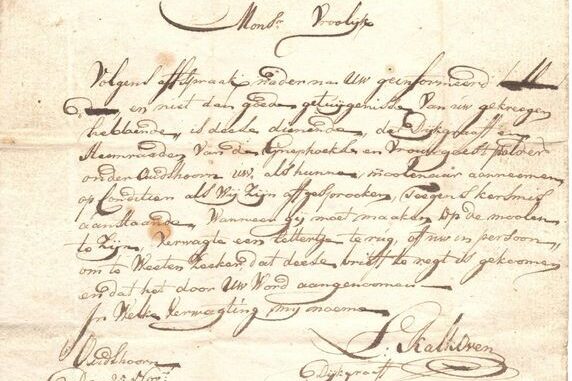 Monsr Vroolijk
Volgens affspraak nader na Uw geinformeerd
en niet dan goede getuijgenisse van uw gekreegen
hebbende, is deese dienende, dat Dijkgraaff en
Heemraaden van de Gnephoek en Vrouwgeest polder
onder Oudshoorn uw, als hunne, moolenaar aanneemen
op Conditien als Wij Zijn affgesprooken, teegens kersmis
aanstaande, Wanneer gij moet maaken op de moolen
te Zijn, Verwagte een lettertje terug of uw in persoon,
om te Weeten Zeeker, dat deese brieff te regt is gekoomen
en dat het door Uw Word aangenoomen
In Welke Verwagting mij noeme
Oudshoorn
Dijkgraaff